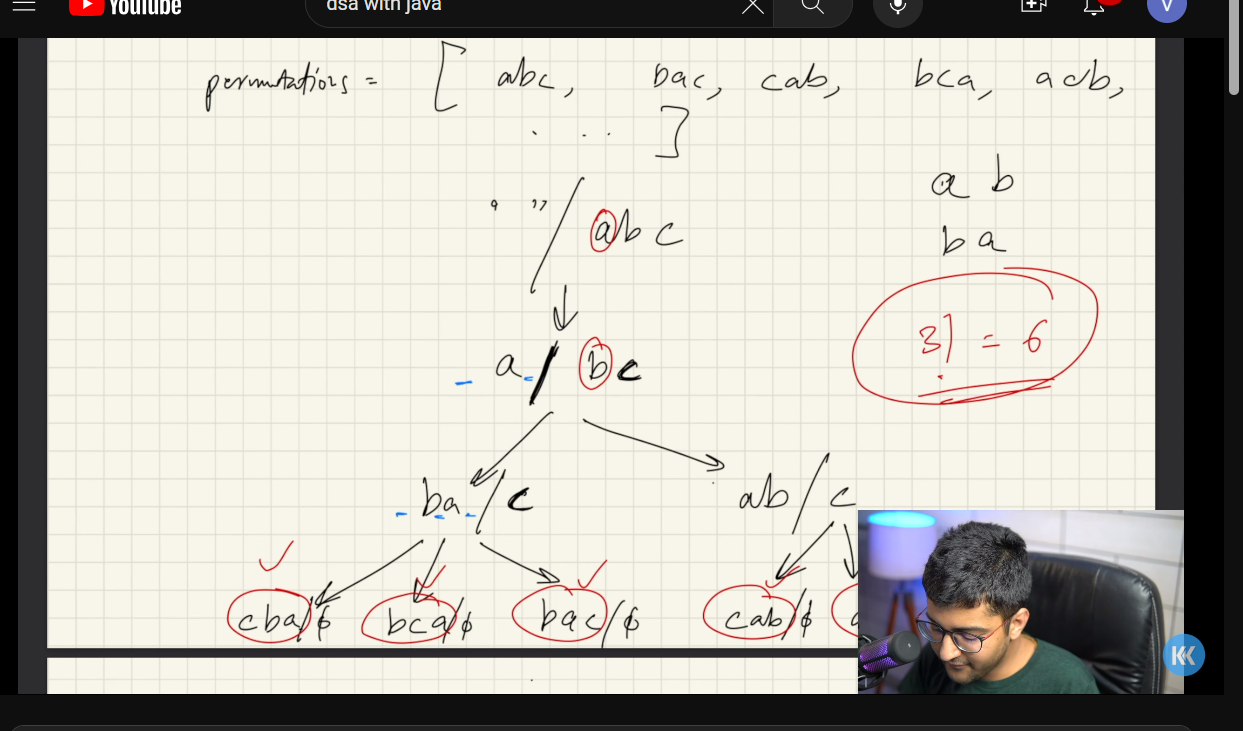 YouTube dsa with java V
permutations = [ abc, bac, cab, bca, acb,
. . . ]
a b
" " / abc
b a
3! = 6
a / bc
ba / c ab / c
cba/ϕ bca/ϕ bac/ϕ cab/ϕ